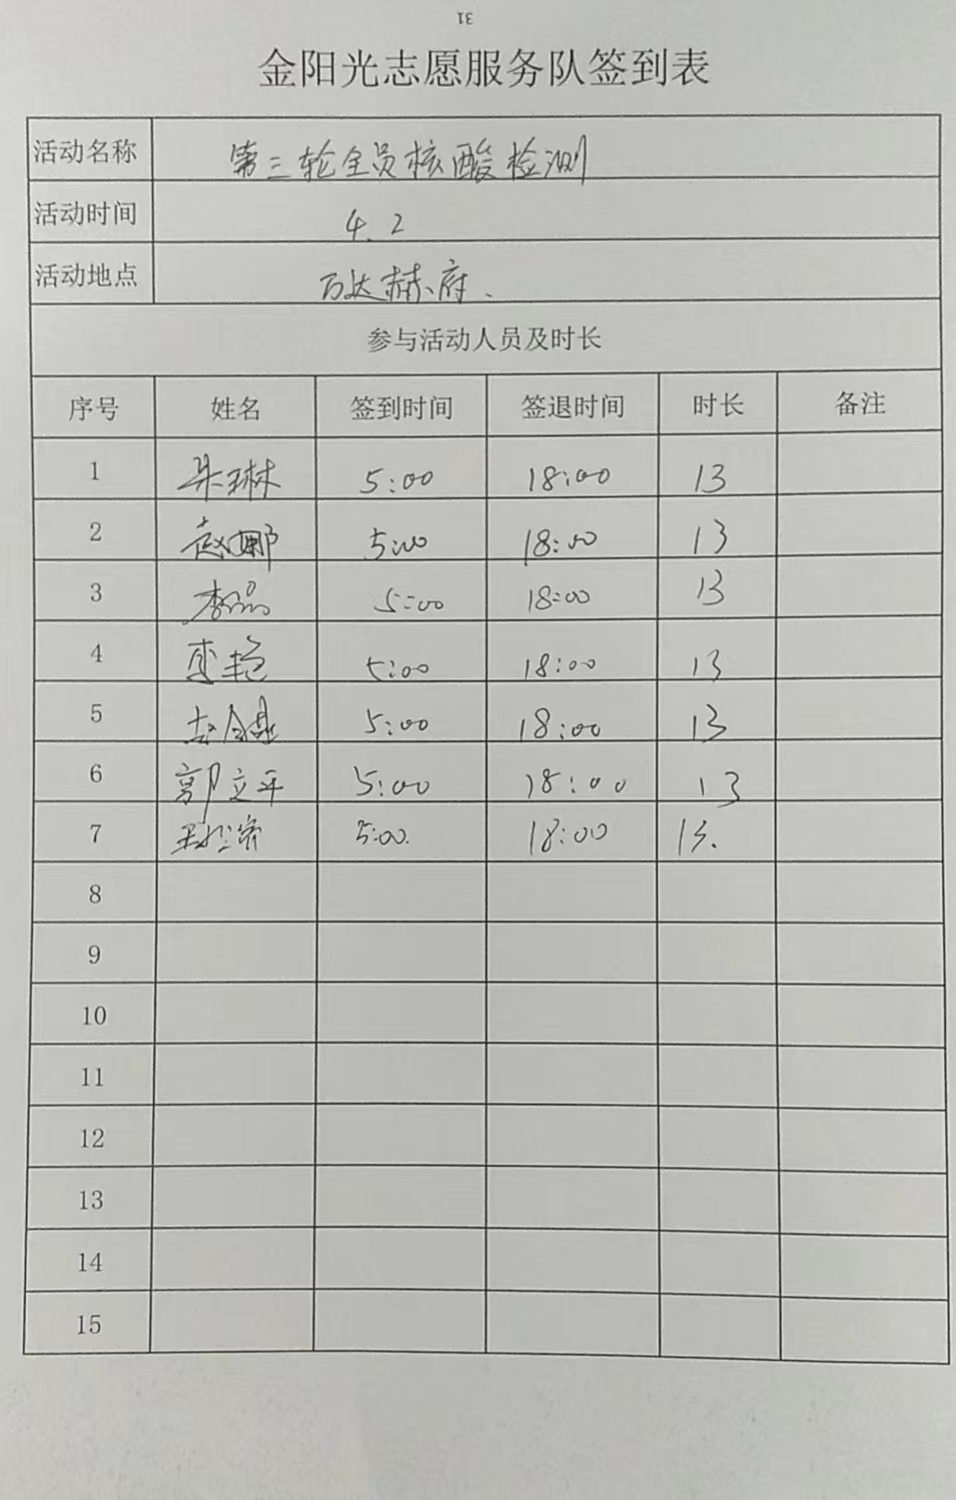 31
金阳光志愿服务队签到表
活动名称 第三轮全员核酸检测
活动时间 4.2
活动地点 万达赫府.
参与活动人员及时长
序号 姓名 签到时间 签退时间 时长 备注
1 朱琳 5:00 18:00 13
2 赵娜 5:00 18:00 13
3 李晶 5:00 18:00 13
4 李艳 5:00 18:00 13
5 赵 5:00 18:00 13
6 郭立平 5:00 18:00 13
7 王 5:00. 18:00 13.
8
9
10
11
12
13
14
15